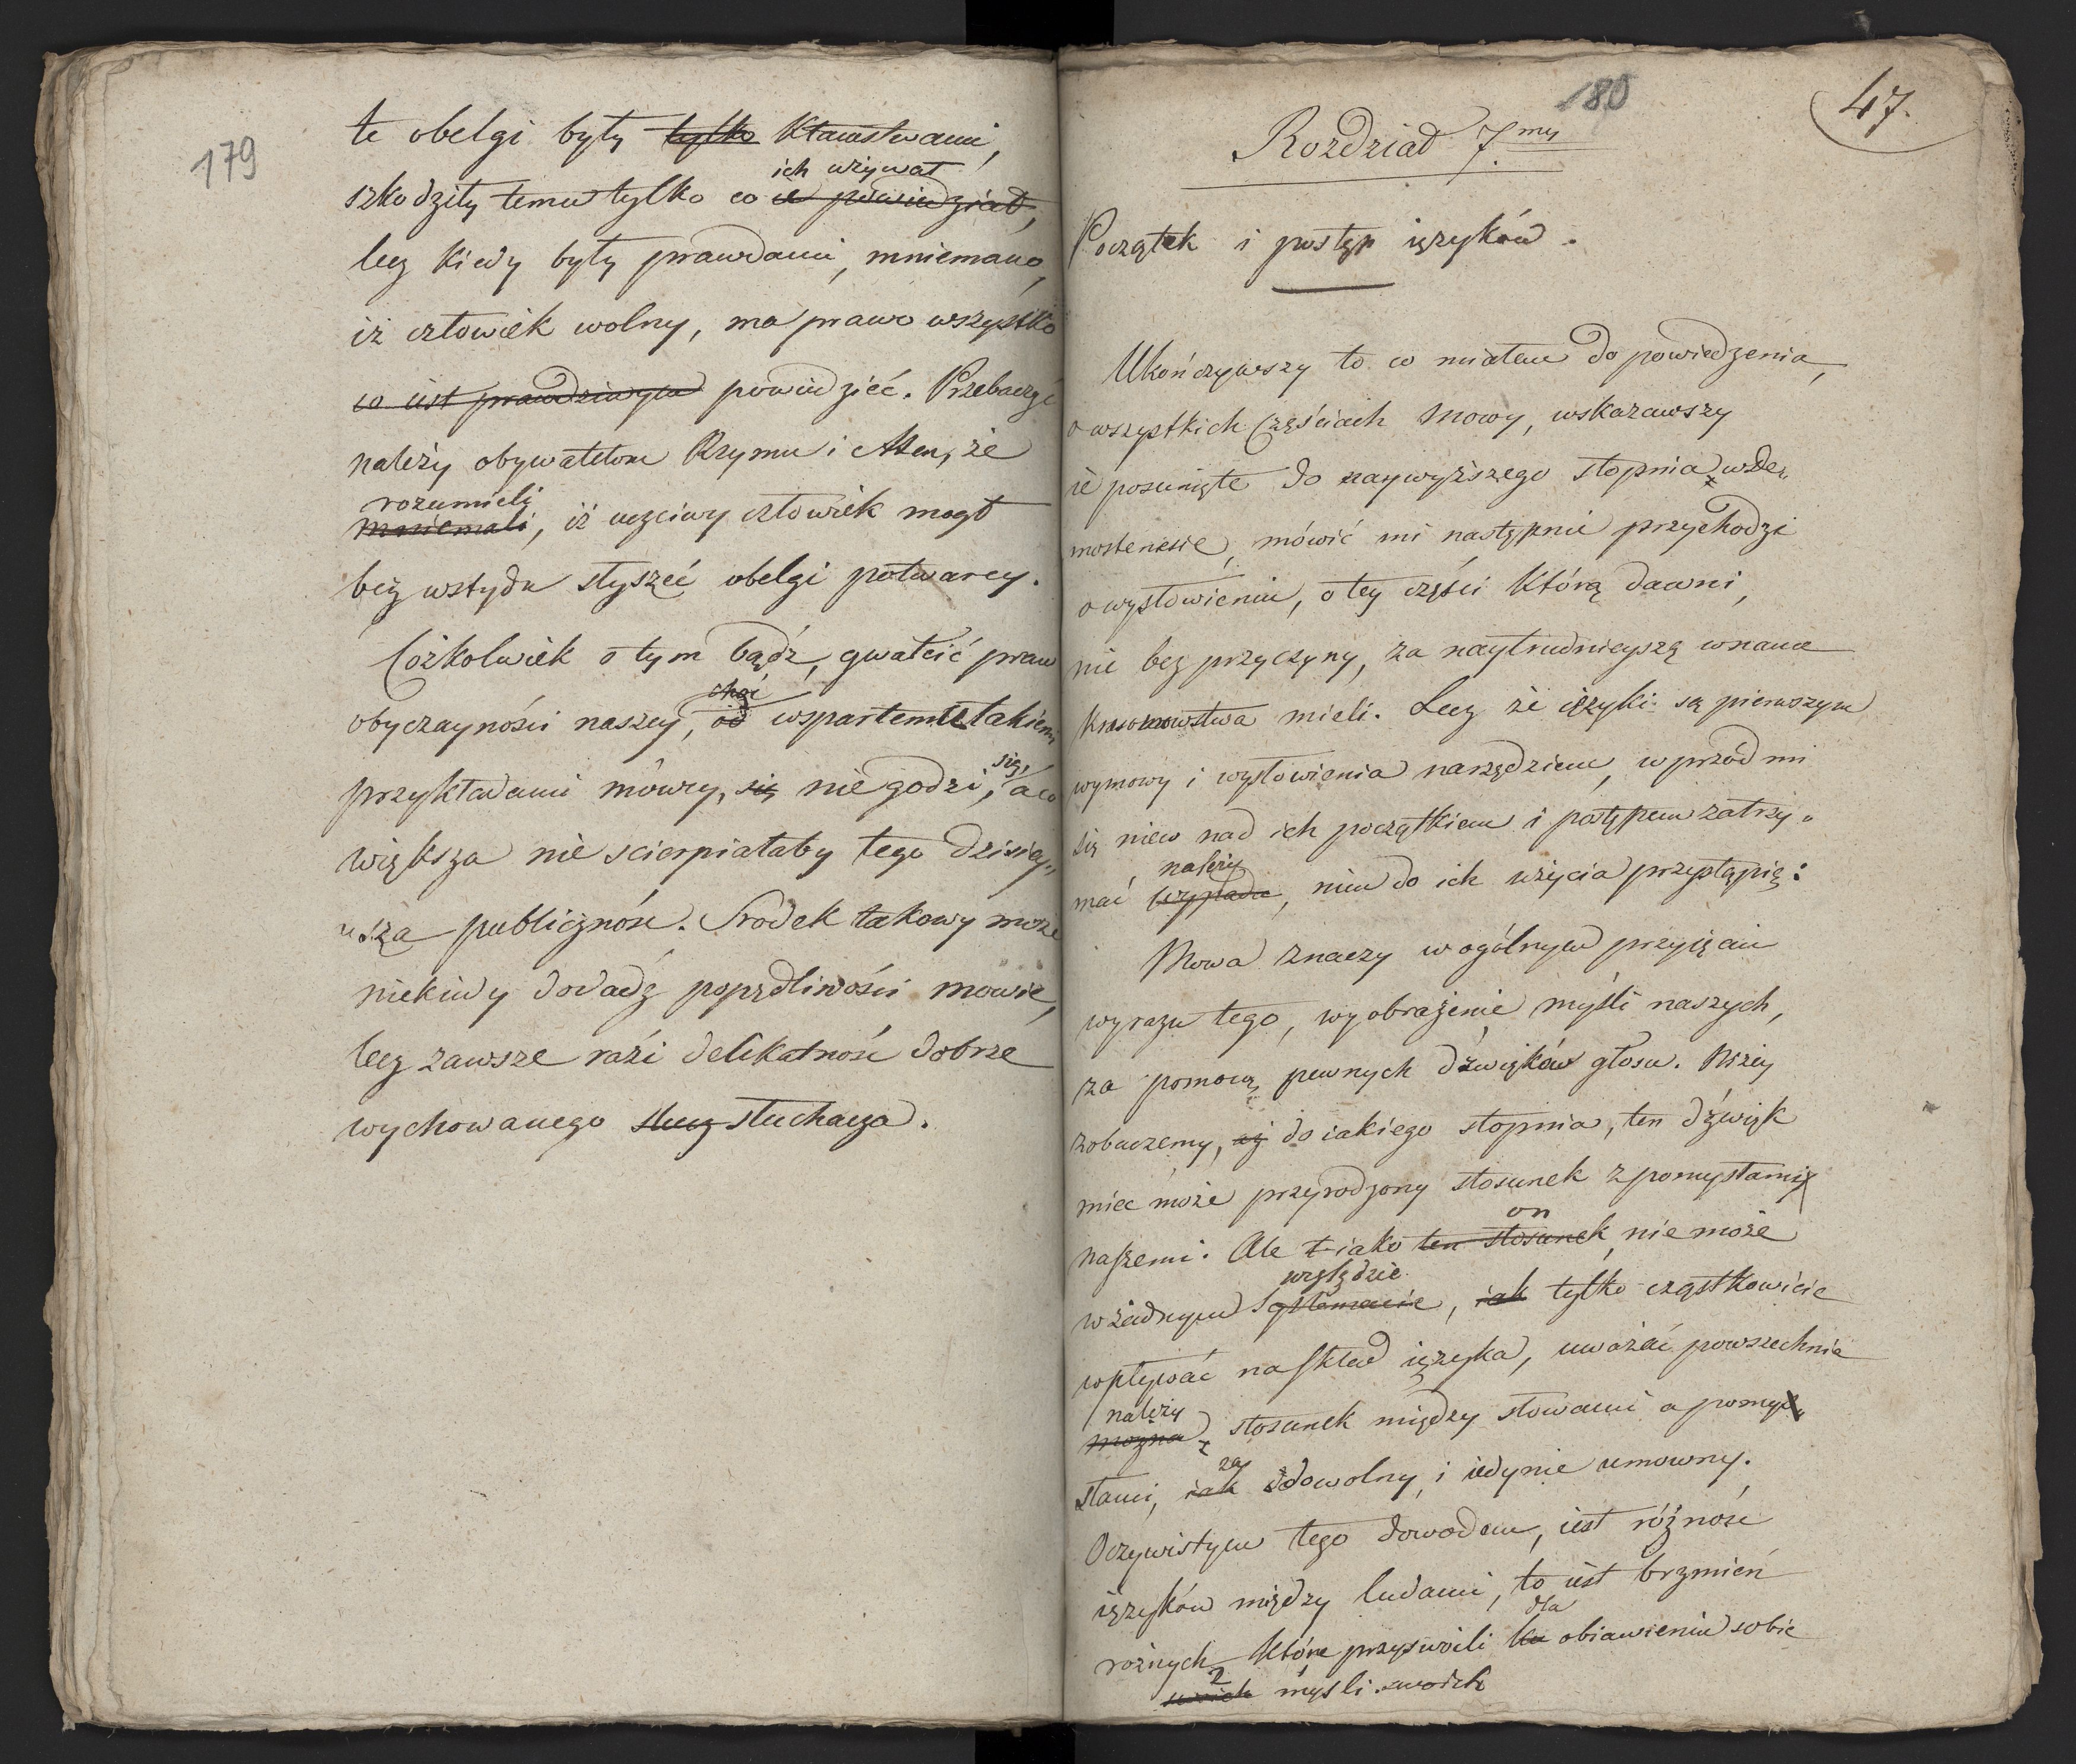 179
te obelgi były tylko kłamstwami,
ich używał
szkodziły temu tylko co ie powiedział,
lecz kiedy były prawdami, mniemano,
iż człowiek wolny, ma prawo wszystko
co iest prawdziwym powiedzieć. Przebaczyć
należy obywatelom Rzymu i Aten, że
rozumieli
mniemali, iż uczciwy człowiek mógł
bez wstydu słyszeć obelgi potwarcy.
Cóżkolwiek o tym bądź, gwałcić praw
choć
obyczayności naszey, wspartemu takiemi
się,
przykładami mówcy, się nie godzi, a co
większa nie scierpiałaby tego dzisiey„
„sza publiczność. Srodek takowy może
niekiedy dodadź popędliwości mowie,
lecz zawsze razi delikatność dobrze
wychowanego słuchacza.
180
47.
Rozdział 7.my
Początek i postęp ięzyków.
Ukończywszy to co miałem do powiedzenia,
o wszystkich częściach mowy, wskazawszy
ie posunięte do naywyższego stopnia w De„
mostenesie, mówić mi następnie przychodzi
o wysłowieniu, o tey części którą dawni,
nie bez przyczyny, za naytrudnieyszą w nauce
krasomowstwa mieli. Lecz że ięzyki są pierwszym
wymowy i wysłowienia narzędziem, wprzód mi
się nieco nad ich początkiem i postępem zatrzy„
należy
mać wypada, nim do ich użycia przystąpię:
Mowa znaczy w ogólnym przyięciu
wyrazu tego, wyobrażenie myśli naszych,
za pomocą pewnych dźwięków głosu. Niżey
zobaczemy, do iakiego stopnia, ten dźwięk
miec może przyrodzony stosunek z pomysłami
on
naszemi. Ale iako ten stosunek, nie może
względzie
w żadnym systemacie, iak tylko cząstkowicie
wpływać na skład ięzyka, uważać powszechnie
należy
można, stosunek między słowami a pomy„
za
słami, iak dowolny, i iedynie umowny.
Oczywistym tego dowodem, iest różność
ięzyków między ludami, to iest brzmień
dla
rożnych które przyswoili ku obiawieniu sobie
2
swoich myśli swoich